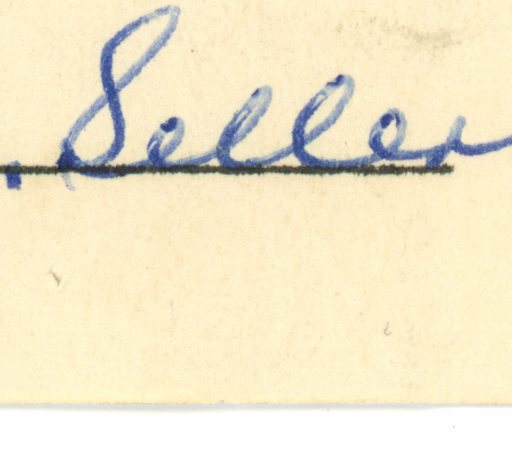 . Seller